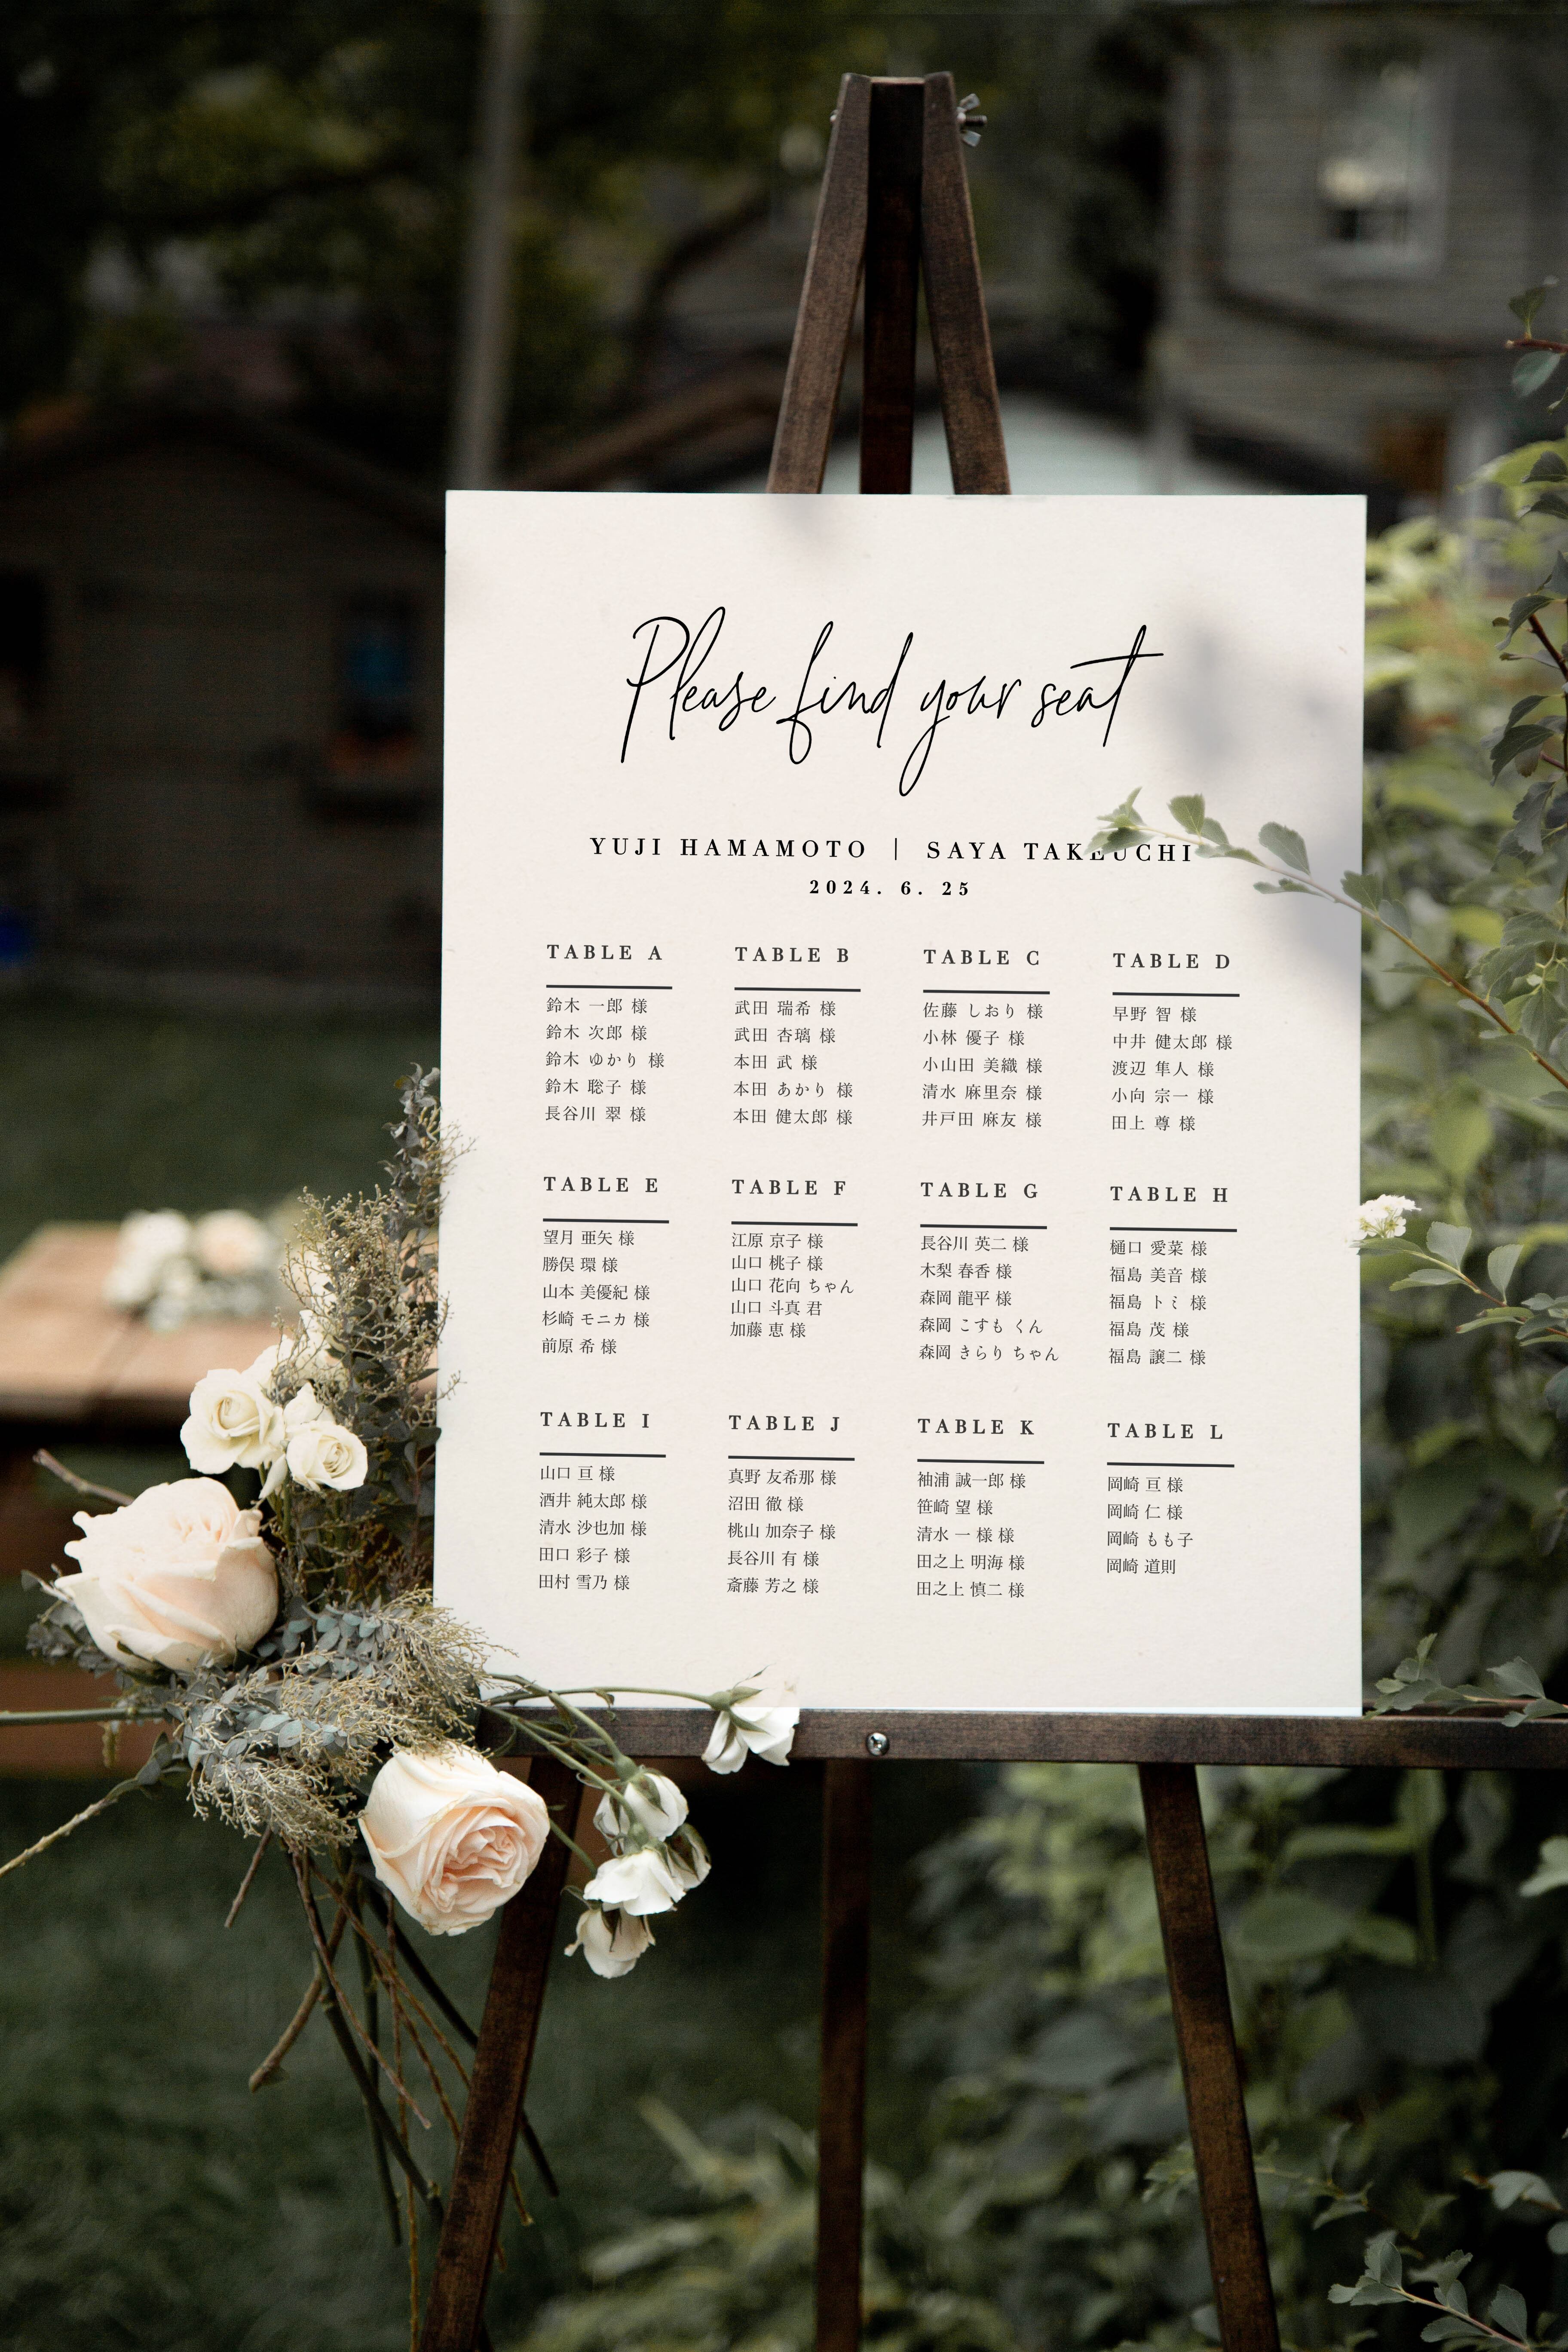 Please find your seat
YUJI HAMAMOTO | SAYA TAKEUCHI
2024. 6. 25
TABLE A
鈴木 一郎 様
鈴木 次郎 様
鈴木 ゆかり 様
鈴木 聡子 様
長谷川 翠 様
TABLE B
武田 瑞希 様
武田 杏璃 様
本田 武 様
本田 あかり 様
本田 健太郎 様
TABLE C
佐藤 しおり 様
小林 優子 様
小山田 美織 様
清水 麻里奈 様
井戸田 麻友 様
TABLE D
早野 智 様
中井 健太郎 様
渡辺 隼人 様
小向 宗一 様
田上 尊 様
TABLE E
望月 亜矢 様
勝俣 環 様
山本 美優紀 様
杉崎 モニカ 様
前原 希 様
TABLE F
江原 京子 様
山口 桃子 様
山口 花向 ちゃん
山口 斗真 君
加藤 恵 様
TABLE G
長谷川 英二 様
木梨 春香 様
森岡 龍平 様
森岡 こすも くん
森岡 きらり ちゃん
TABLE H
樋口 愛菜 様
福島 美音 様
福島 トミ 様
福島 茂 様
福島 譲二 様
TABLE I
山口 亘 様
酒井 純太郎 様
清水 沙也加 様
田口 彩子 様
田村 雪乃 様
TABLE J
真野 友希那 様
沼田 徹 様
桃山 加奈子 様
長谷川 有 様
斎藤 芳之 様
TABLE K
袖浦 誠一郎 様
笹崎 望 様
清水 一 様 様
田之上 明海 様
田之上 慎二 様
TABLE L
岡崎 亘 様
岡崎 仁 様
岡崎 もも子
岡崎 道則